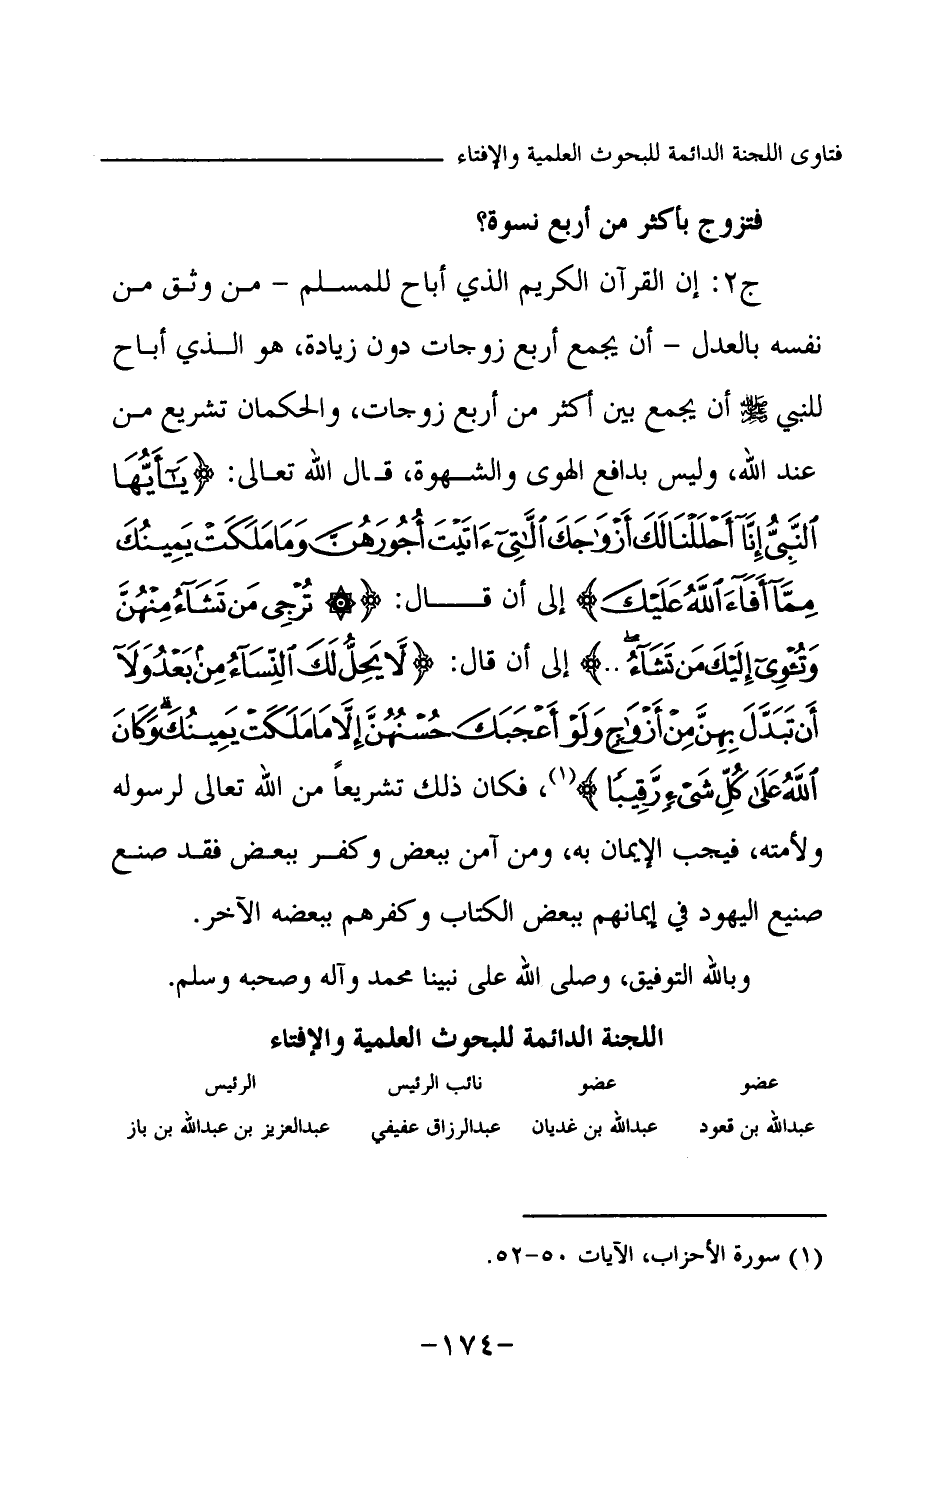 فتاوى اللجنة الدائمة للبحوث العلمية والإفتاء
فتزوج بأكثر من أربع نسوة؟
ج٢: إن القرآن الكريم الذي أباح للمسلم - من وثق من
نفسه بالعدل - أن يجمع أربع زوجات دون زيادة، هو الذي أباح
للنبي ﷺ أن يجمع بين أكثر من أربع زوجات، والحكمان تشريع من
عند الله، وليس بدافع الهوى والشهوة، قال الله تعالى: ﴿يَٰٓأَيُّهَا
ٱلنَّبِيُّ إِنَّآ أَحْلَلْنَا لَكَ أَزْوَٰجَكَ ٱلَّٰتِىٓ ءَاتَيْتَ أُجُورَهُنَّ وَمَا مَلَكَتْ يَمِينُكَ
مِمَّآ أَفَآءَ ٱللَّهُ عَلَيْكَ﴾ إلى أن قال: ﴿۞ تُرْجِى مَن تَشَآءُ مِنْهُنَّ
وَتُـْٔوِىٓ إِلَيْكَ مَن تَشَآءُ ۖ..﴾ إلى أن قال: ﴿لَّا يَحِلُّ لَكَ ٱلنِّسَآءُ مِنۢ بَعْدُ وَلَآ
أَن تَبَدَّلَ بِهِنَّ مِنْ أَزْوَٰجٍ وَلَوْ أَعْجَبَكَ حُسْنُهُنَّ إِلَّا مَا مَلَكَتْ يَمِينُكَ ۗ وَكَانَ
ٱللَّهُ عَلَىٰ كُلِّ شَىْءٍ رَّقِيبًا﴾(١)، فكان ذلك تشريعاً من الله تعالى لرسوله
ولأمته، فيجب الإيمان به، ومن آمن ببعض وكفر ببعض فقد صنع
صنيع اليهود في إيمانهم ببعض الكتاب وكفرهم ببعضه الآخر.
وبالله التوفيق، وصلى الله على نبينا محمد وآله وصحبه وسلم.
اللجنة الدائمة للبحوث العلمية والإفتاء
عضو عضو نائب الرئيس الرئيس
عبدالله بن قعود عبدالله بن غديان عبدالرزاق عفيفي عبدالعزيز بن عبدالله بن باز
(١) سورة الأحزاب، الآيات ٥٠-٥٢.
-١٧٤-